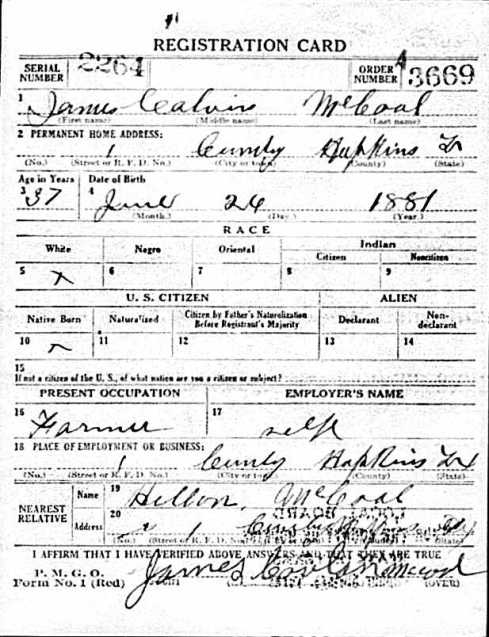 REGISTRATION CARD
SERIAL NUMBER 2264 ORDER NUMBER A 3669
1 James Calvin McCoal
(First name) (Middle name) (Last name)
2 PERMANENT HOME ADDRESS:
1 Cumby Hopkins Tx
(No.) (Street or R. F. D. No.) (City or town) (County) (State)
Age in Years Date of Birth
3 37 4 June 24 1881
(Month.) (Day.) (Year.)
RACE
White Negro Oriental Indian
Citizen Noncitizen
5 x 6 7 8 9
U. S. CITIZEN ALIEN
Native Born Naturalized Citizen by Father's Naturalization Before Registrant's Majority Declarant Non-declarant
10 x 11 12 13 14
15
If not a citizen of the U. S., of what nation are you a citizen or subject?
PRESENT OCCUPATION EMPLOYER'S NAME
16 Farmer 17 self
18 PLACE OF EMPLOYMENT OR BUSINESS:
1 Cumby Hopkins Tx
(No.) (Street or R. F. D. No.) (City or town) (County) (State)
NEAREST RELATIVE Name 19 McCoal
Address 20 1 Hopkins
(No.) (Street or R. F. D. No.)
I AFFIRM THAT I HAVE VERIFIED ABOVE ANSWERS AND THAT THEY ARE TRUE
P. M. G. O.
Form No. 1 (Red) James (OVER)